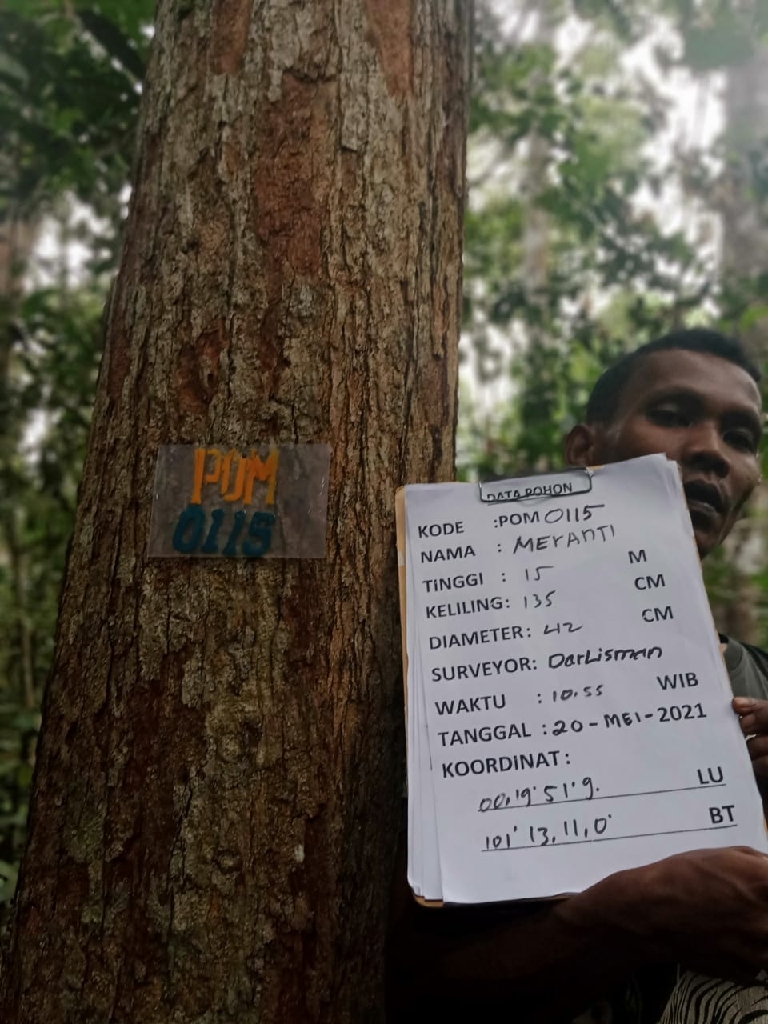 POM
0115
DATA POHON
KODE :POM 0115
NAMA : MERANTI
TINGGI : 15 M
KELILING: 135 CM
DIAMETER: 42 CM
SURVEYOR: Darlisman
WAKTU : 10.55 WIB
TANGGAL : 20-MEI-2021
KOORDINAT:
00,19'51'9. LU
101'13,11,0' BT